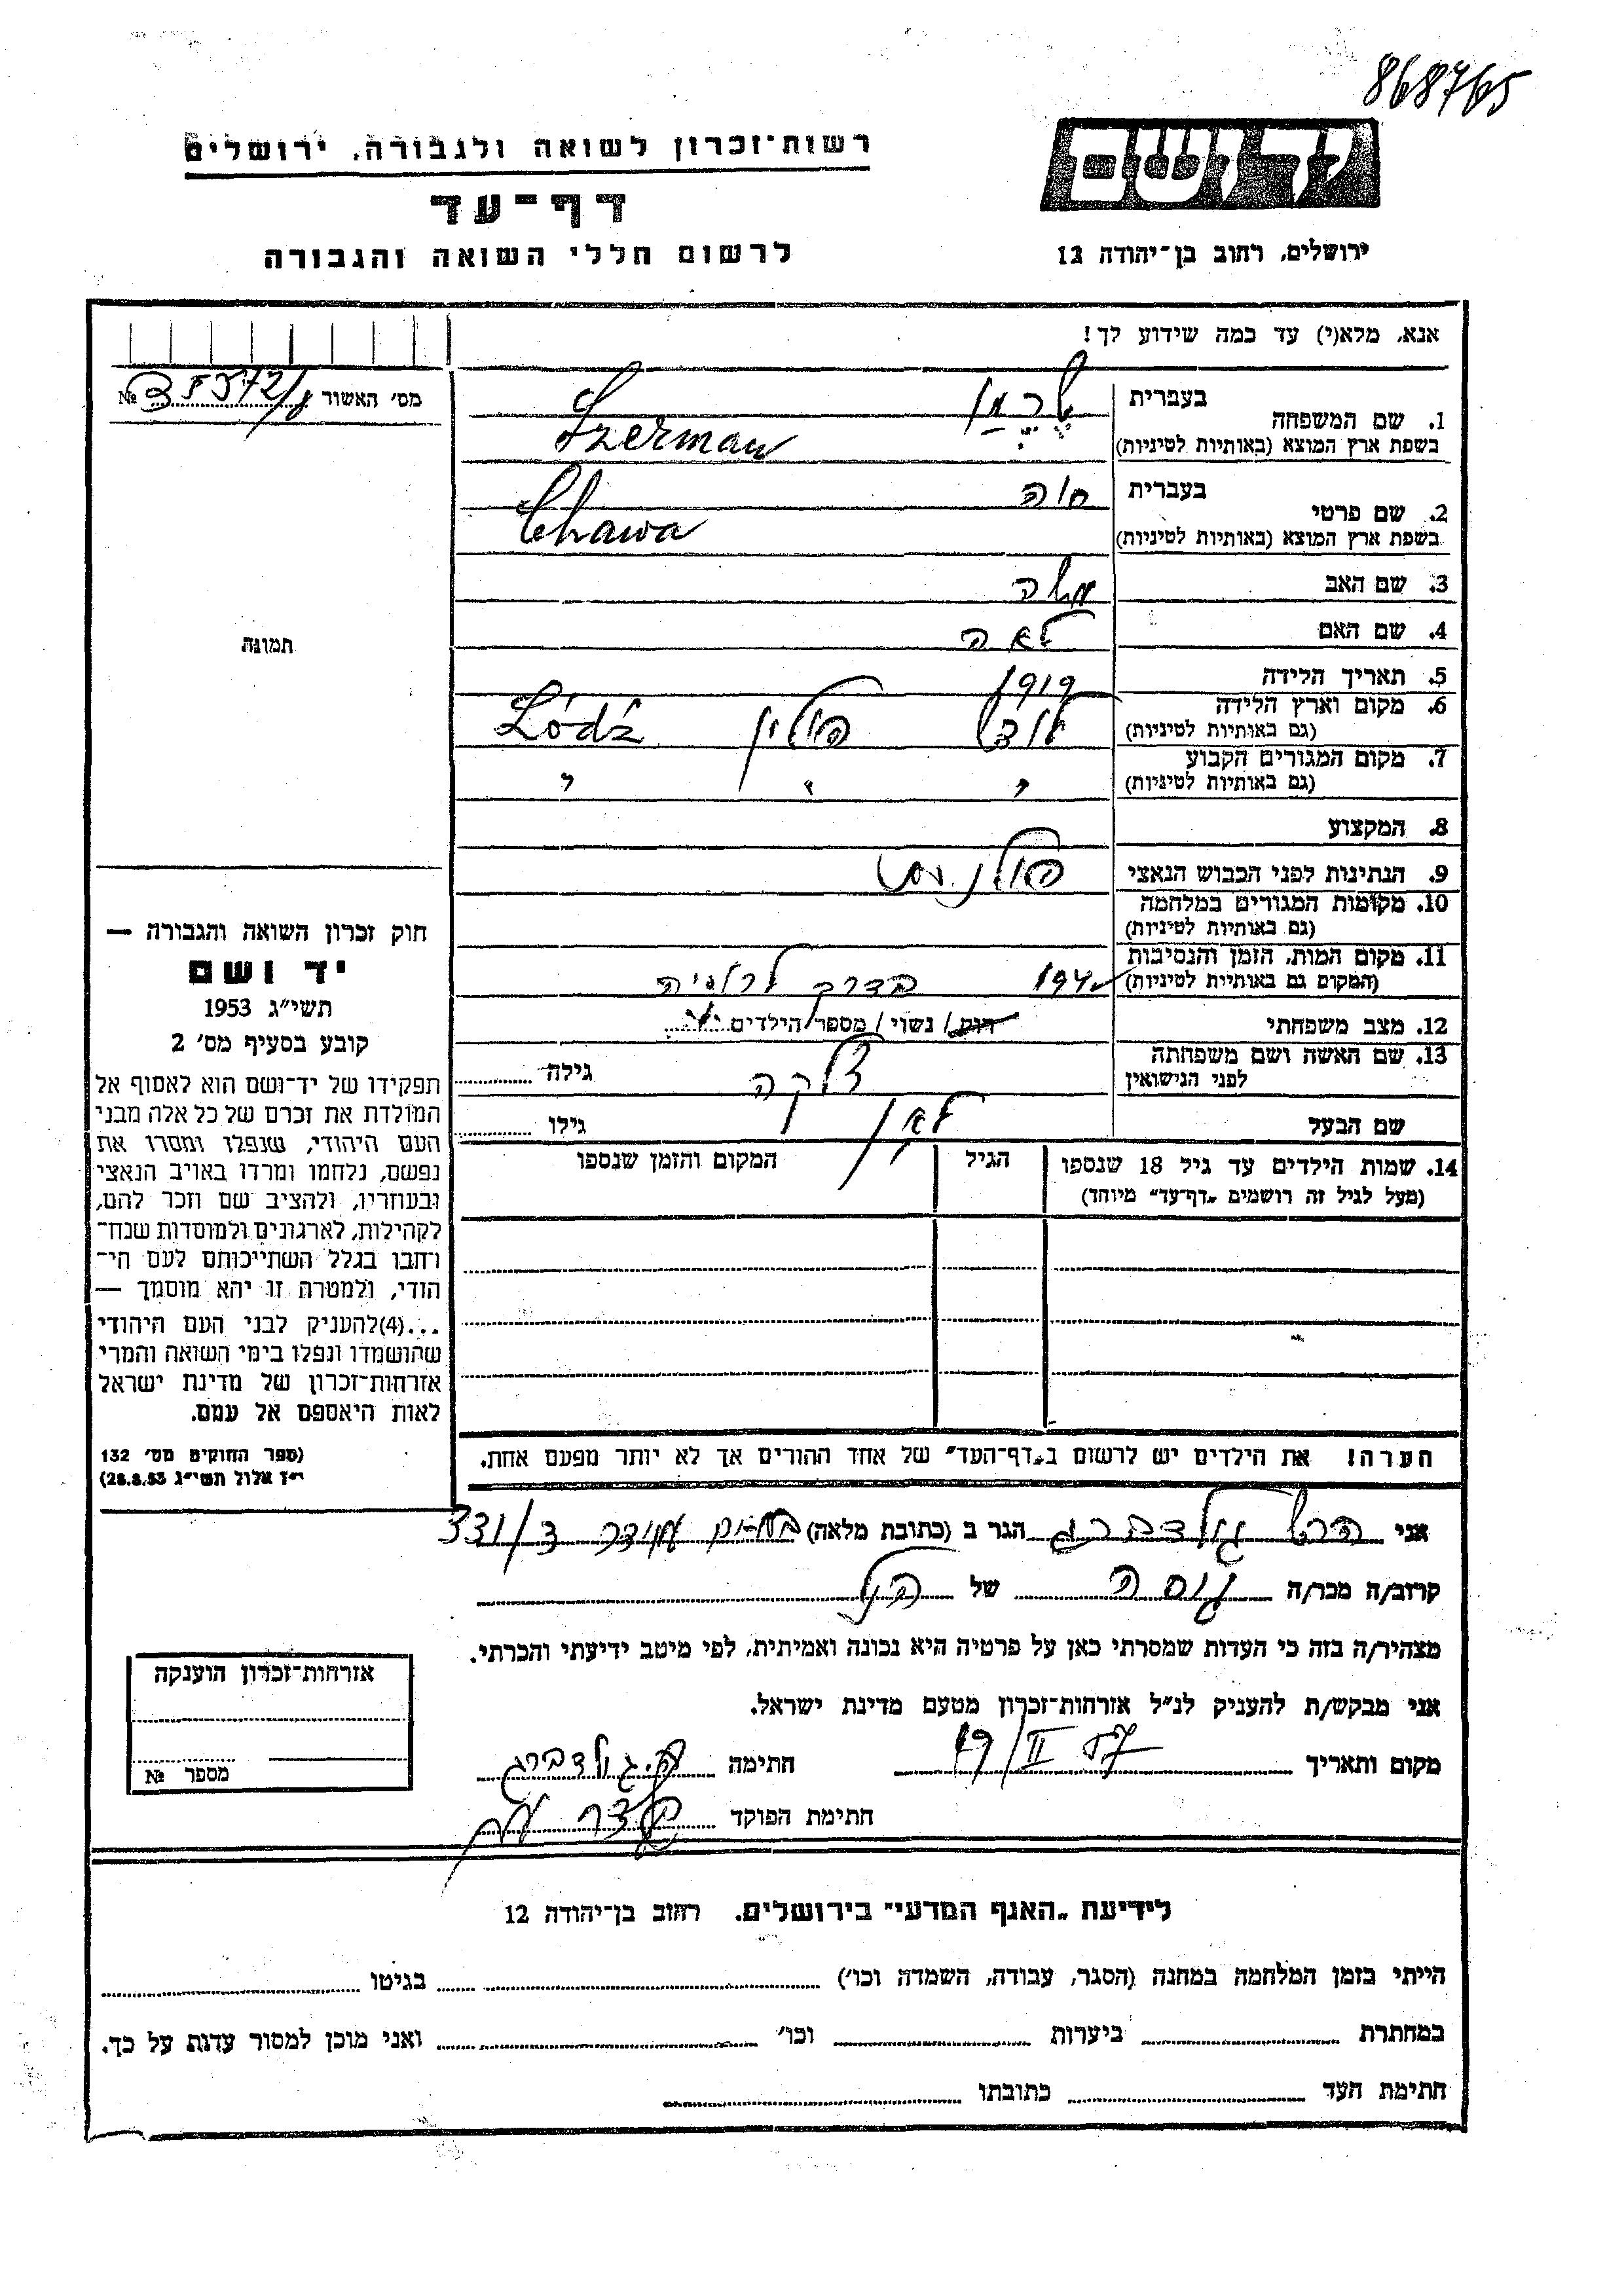 868765
רשות־זכרון לשואה ולגבורה, ירושלים
דף־עד
לרשום חללי השואה והגבורה
יד ושם
ירושלים, רחוב בן־יהודה 12
אנא, מלא(י) עד כמה שידוע לך!
מס׳ האשור №
1. שם המשפחה בעברית שרמן
בשפת ארץ המוצא (באותיות לטיניות) Szerman
2. שם פרטי בעברית חוה
בשפת ארץ המוצא (באותיות לטיניות) Chawa
3. שם האב משה
4. שם האם לאה
5. תאריך הלידה 1919
6. מקום וארץ הלידה (גם באותיות לטיניות) לודז פולין Łódź
7. מקום המגורים הקבוע (גם באותיות לטיניות) " " "
8. המקצוע
9. הנתינות לפני הכבוש הנאצי פולנית
10. מקומות המגורים במלחמה (גם באותיות לטיניות)
11. מקום המות, הזמן והנסיבות (המקום גם באותיות לטיניות) 1940 בדרך לרוסיה
12. מצב משפחתי רוק / נשוי / מספר הילדים
13. שם האשה ושם משפחתה לפני הנישואין גילה
שם הבעל גילו
14. שמות הילדים עד גיל 18 שנספו
(מעל לגיל זה רושמים „דף־עד” מיוחד)
הגיל
המקום והזמן שנספו
הערה! את הילדים יש לרשום ב„דף־העד” של אחד ההורים אך לא יותר מפעם אחת.
תמונה
חוק זכרון השואה והגבורה —
יד ושם
תשי״ג 1953
קובע בסעיף מס׳ 2
תפקידו של יד־ושם הוא לאסוף אל
המולדת את זכרם של כל אלה מבני
העם היהודי, שנפלו ומסרו את
נפשם, נלחמו ומרדו באויב הנאצי
ובעוזריו, ולהציב שם וזכר להם,
לקהילות, לארגונים ולמוסדות שנח־
רחבו בגלל השתייכותם לעם הי־
הודי, ולמטרה זו יהא מוסמך —
...(4)להעניק לבני העם היהודי
שהושמדו ונפלו בימי השואה והמרי
אזרחות־זכרון של מדינת ישראל
לאות היאספם אל עמם.
(ספר החוקים מס׳ 132
י״ז אלול תשי״ג 28.8.53)
אני גולדברג הגר ב (כתובת מלאה) 331/ד
קרוב/ה מכר/ה גיסה של הנ״ל
מצהיר/ה בזה כי העדות שמסרתי כאן על פרטיה היא נכונה ואמיתית, לפי מיטב ידיעתי והכרתי.
אני מבקש/ת להעניק לנ״ל אזרחות־זכרון מטעם מדינת ישראל.
מקום ותאריך 19/II 57 חתימה גולדברג
חתימת הפוקד
אזרחות־זכרון הוענקה
מספר №
לידיעת „האגף המדעי” בירושלים. רחוב בן־יהודה 12
הייתי בזמן המלחמה במחנה (הסגר, עבודה, השמדה וכו׳) בגיטו
במחתרת ביערות וכו׳ ואני מוכן למסור עדות על כך.
חתימת העד כתובתו